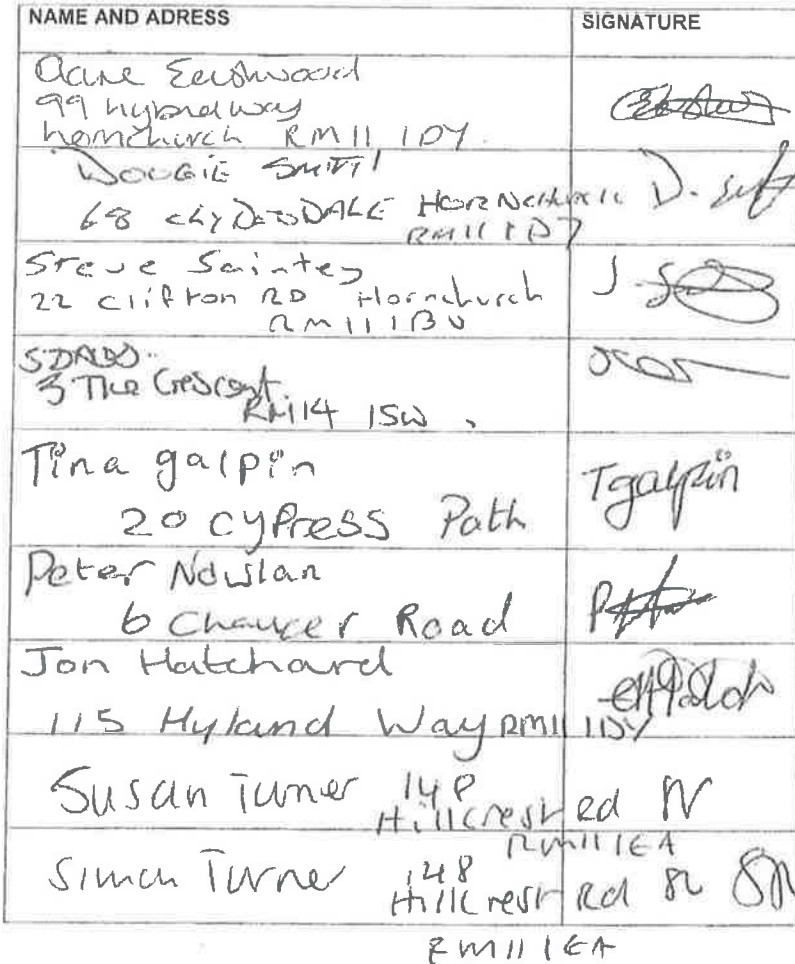 NAME AND ADRESS SIGNATURE
Eastwood
99 hyland way
hornchurch RM11 1DY
DOUGIE SMITH D. Smith
68 HORNCHURCH
RM11 1DJ
Steve
22 Clifton RD Hornchurch
RM11 1BU
3 The Crescent.
RM14 1SW
Tina galpin Tgalpin
20 CYPRESS Path
Peter Nowlan
6 Chaucer Road
Jon Hatchard
115 Hyland Way RM11 1DY
Susan Turner 148
Hillcrest Rd
RM11 1EA
Simon Turner 148
Hillcrest Rd
RM11 1EA